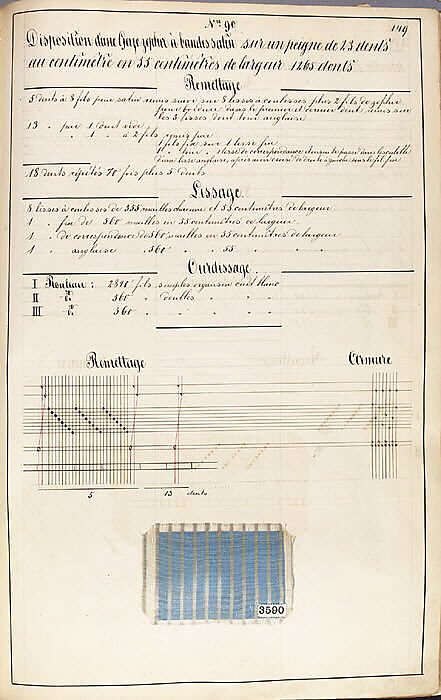 N.º 90
149
Disposition d'une Gaze zephir à bandes satin sur un peigne de 23 dents
au centimètre en 55 centimètres de largeur 1265 dents
Remettage
5 dents à 8 fils pour satin remis suivi sur 8 lisses à coulisses plus 2 fils de zephir
pour bordure dans le premier et dernier dent, remis sur
les 3 lisses dont leur anglaise
13 " pour 1 dent vide
" " 1 " à 2 fils remis fixe
1 fil fixe sur 1 lisse fixe
18 dents répétés 70 fois plus 5 dents
Lissage
8 lisses à coulisses de 355 mailles chacune et 55 centimètres de largeur
1 " fixe de 560 mailles en 55 centimètres de largeur
1 " de correspondance de 560 mailles en 55 centimètres de largeur
1 " anglaise " 560 " " 55 " "
Ourdissage
I Rouleau : 2840 fils simples organsin cuit blanc
II dº 560 " doubles " " "
III dº 560 " " " " "
Remettage
Armure
5 13 dents
3590